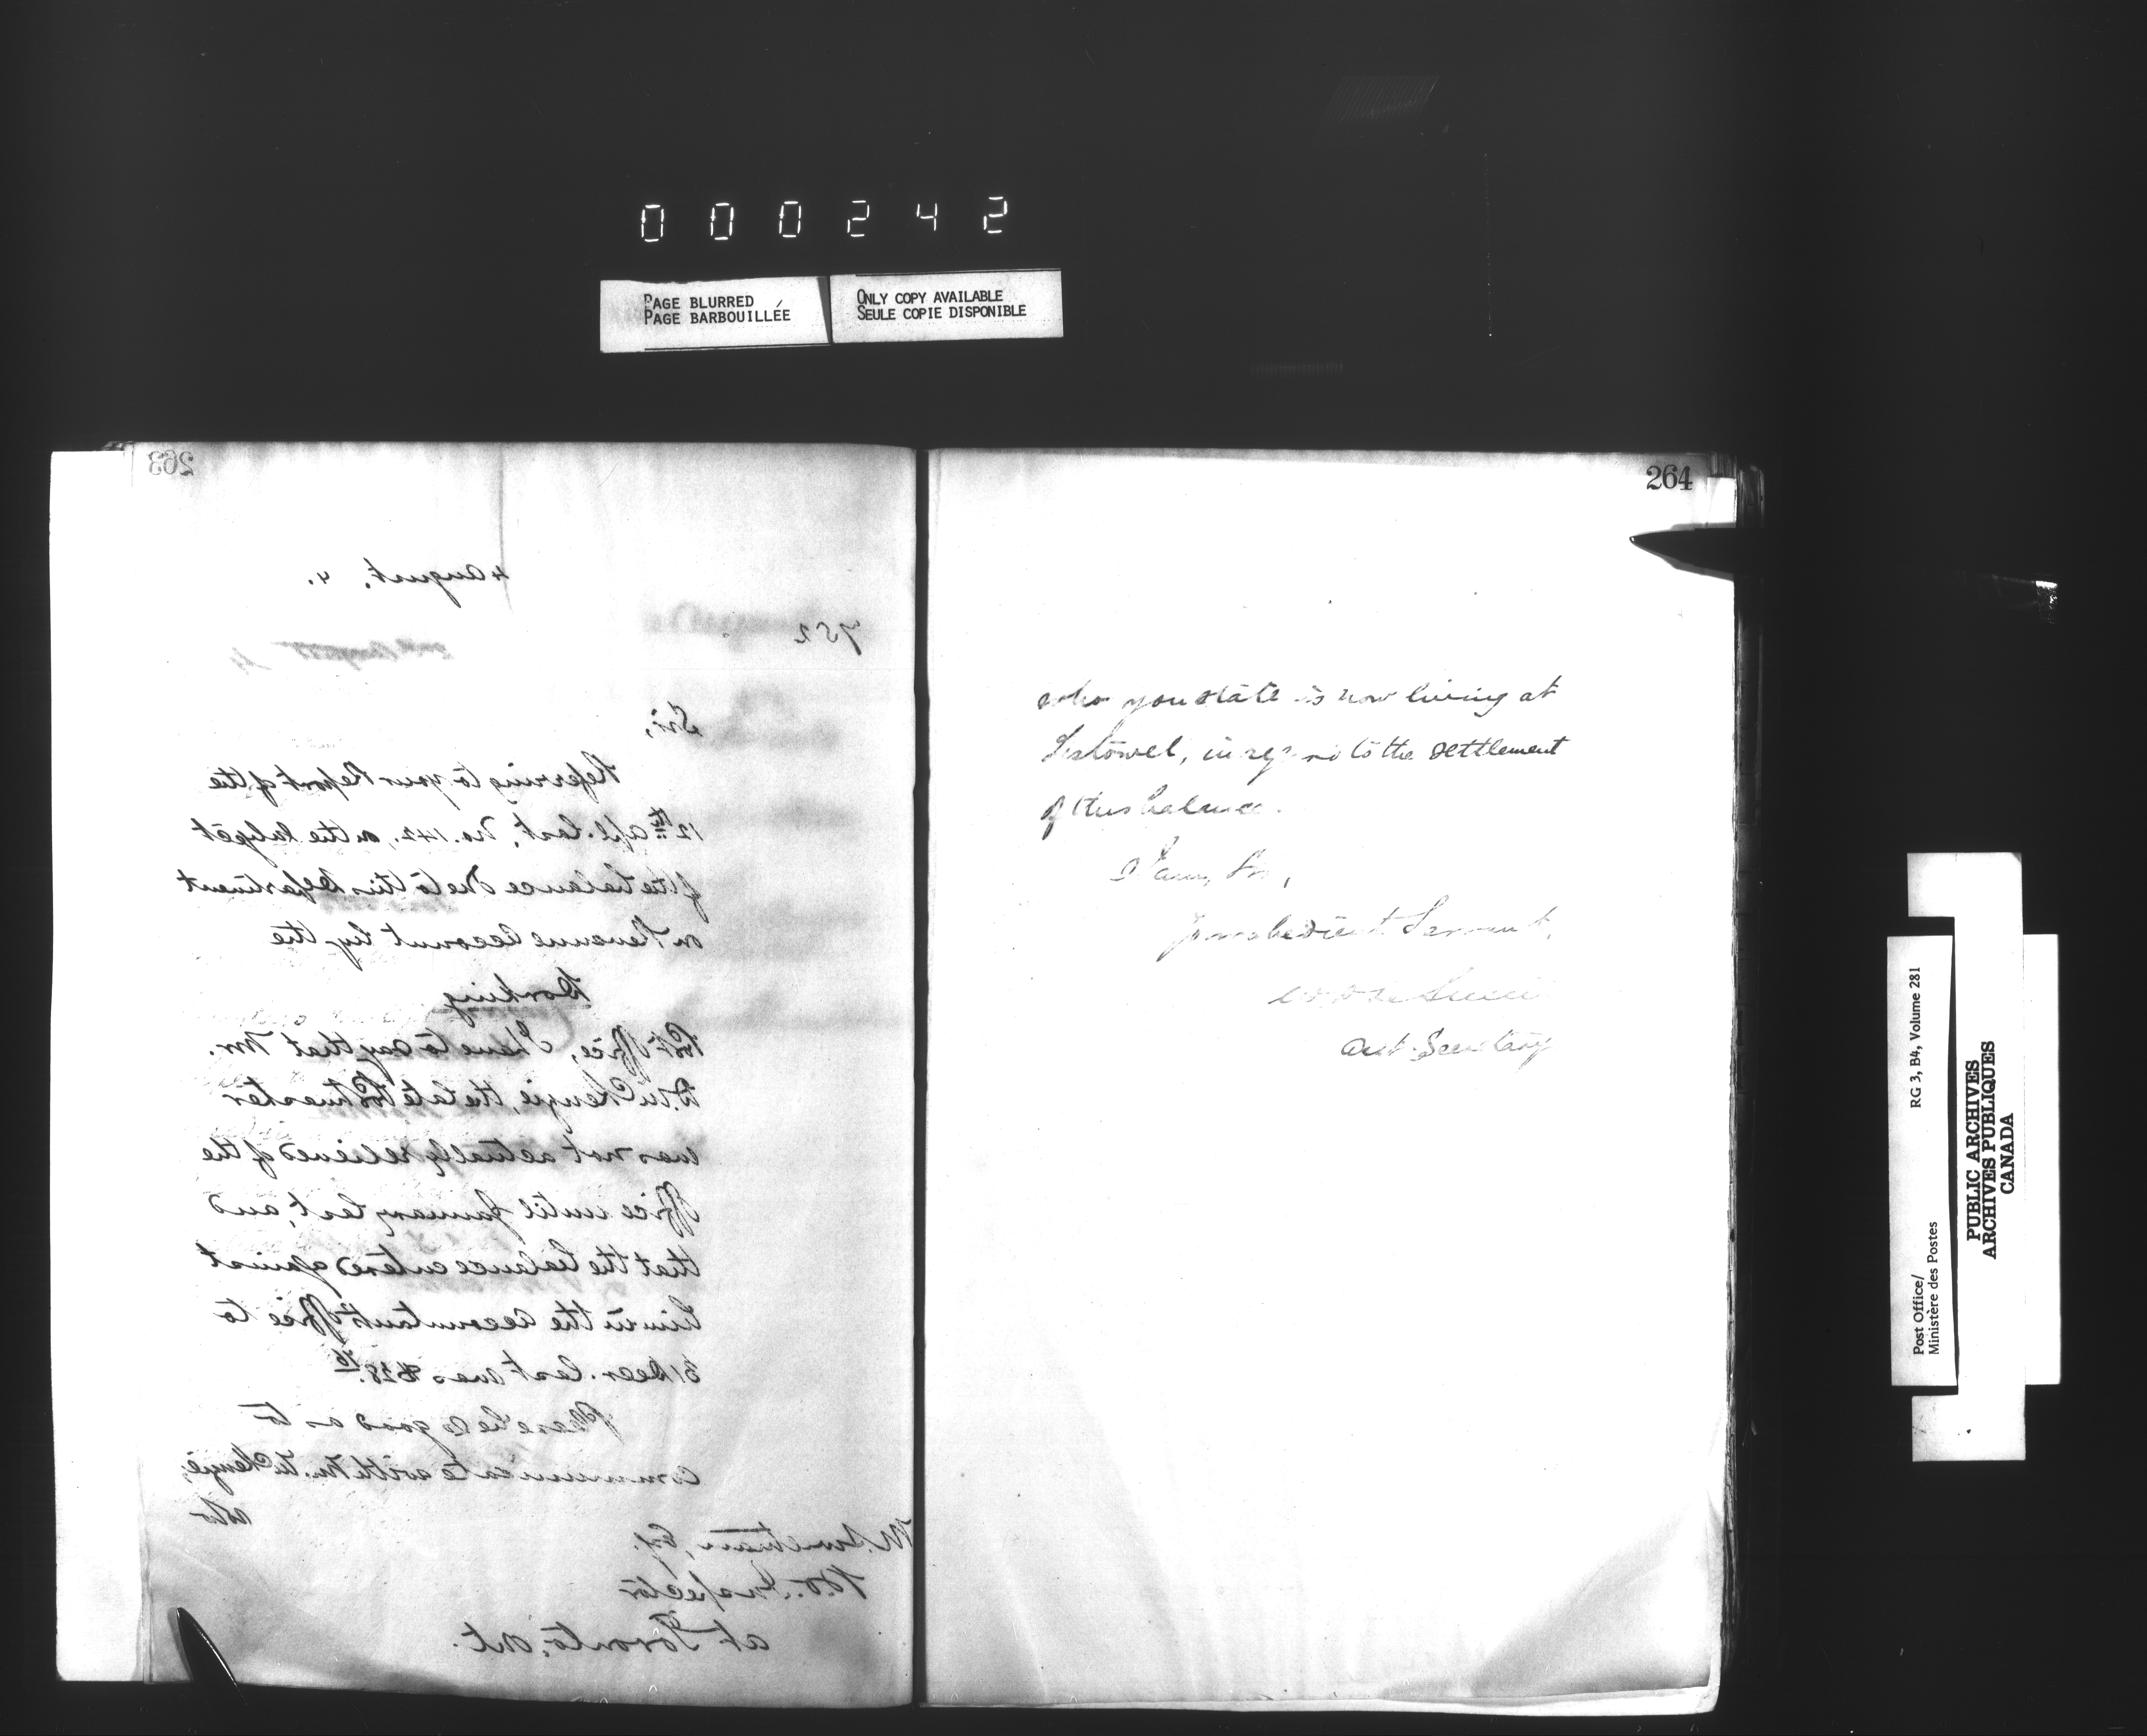 000242
PAGE BLURRED
PAGE BARBOUILLÉE
ONLY COPY AVAILABLE
SEULE COPIE DISPONIBLE
263
4 August. 4.
752
Sir,
Referring to your Report of the
12th Apl. last, No. 142, on the subject
of the balance due to this Department
on Revenue account by the
Dorking
Post Office, I have to say that Mr.
D. McKenzie, the late Postmaster
was not actually relieved of the
Office until January last, and
that the balance entered against
him in the Accountant's Office to
31 Decr. last was $28.76
Please be so good as to
communicate with Mr. McKenzie,
who
M. Sweetnam, Esq.
P.O. Inspector
at Toronto, Ont.
264
who you state is now living at
Listowel, in regard to the settlement
of this balance.
I am, Sir,
Your obedient Servant,
Asst. Secretary
Post Office/
Ministère des Postes
RG 3, B4, Volume 281
PUBLIC ARCHIVES
ARCHIVES PUBLIQUES
CANADA